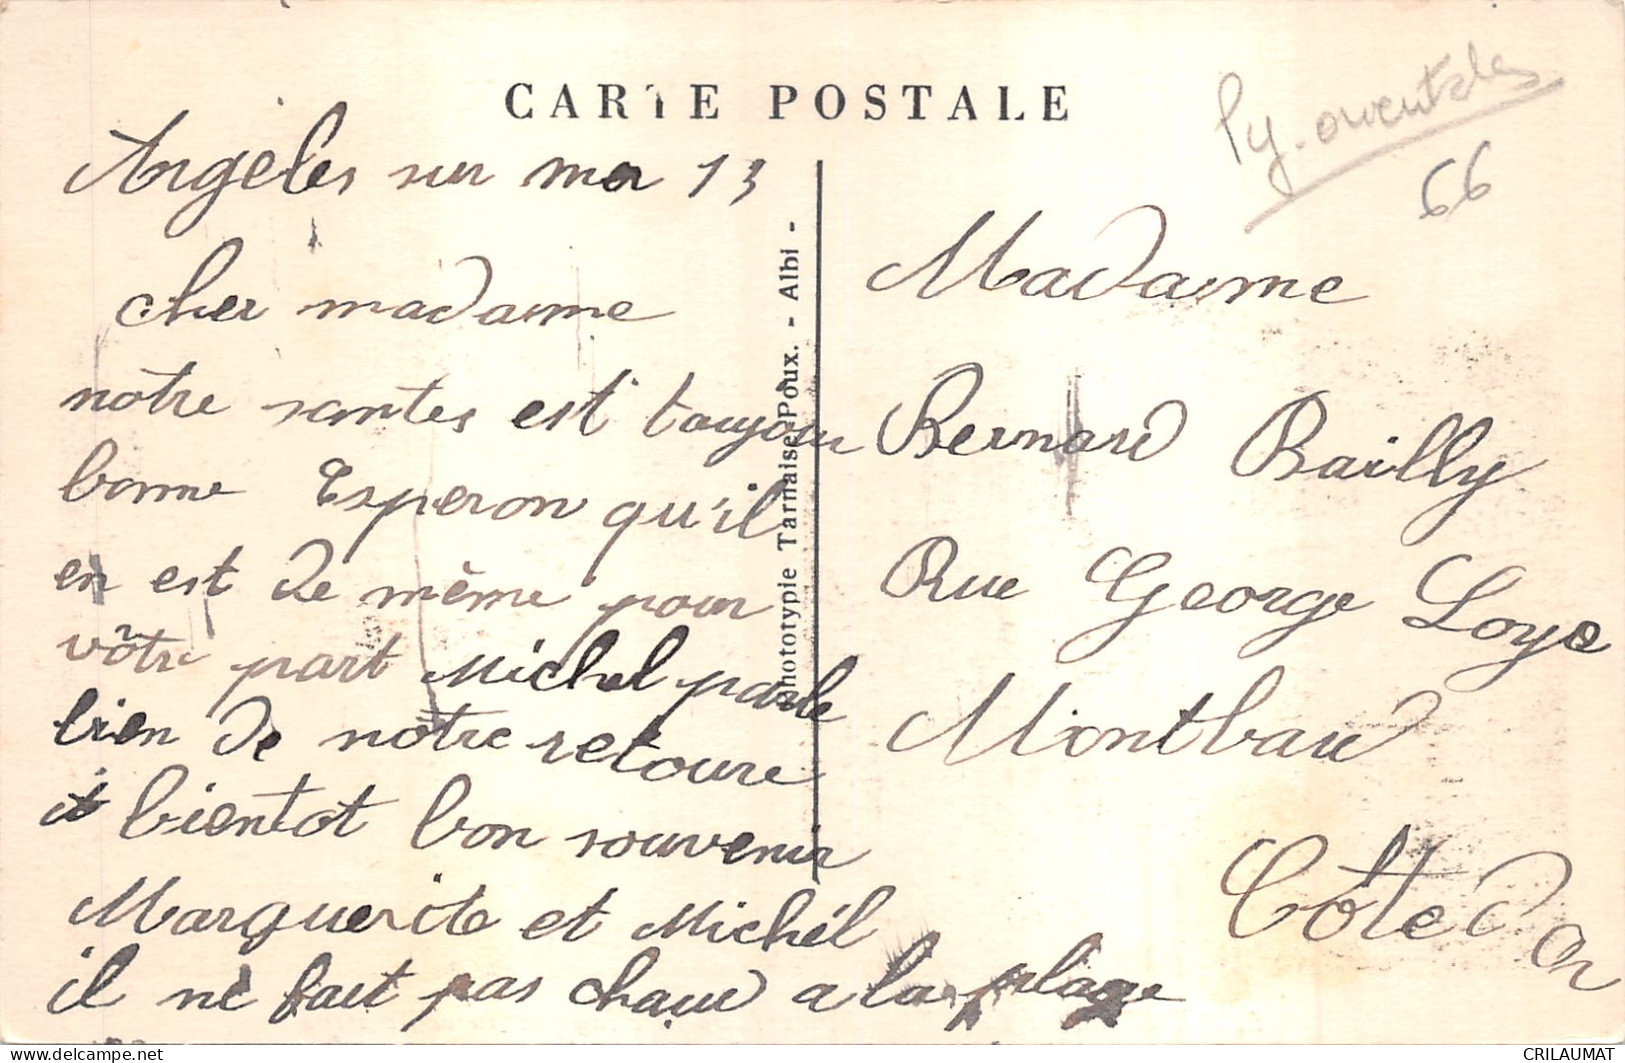 CARTE POSTALE
Py. orientales
66
Argelès sur mer 13
cher madame
notre santes est toujour
bonne Esperon qu'il
en est de même pour
vôtre part Michel parle
bien de notre retoure
a bientot bon souvenir
Marguerite et Michél
il ne fait pas chaud a la plage
Phototypie Tarnaise Poux. - Albi -
Madame
Bernard Bailly
Rue George Loye
Montbard
Côte d or
delcampe.net
CRILAUMAT